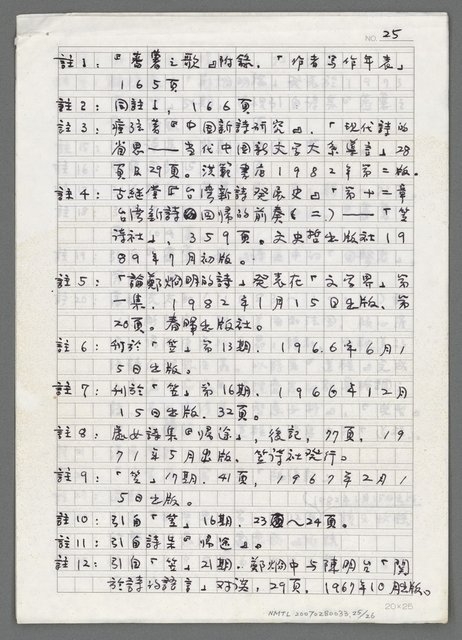 NO. 25
註1：『蕃薯之歌』附錄．「作者寫作年表」
165頁
註2：同註1，166頁
註3：瘂弦著『中国新詩研究』．「現代詩的
省思——当代中国新文学大系導言」28
頁及29頁。洪範書店1982年第二版．
註4：古継堂『台湾新詩発展史』「第十二章
台湾新詩回帰的前奏（二）——「笠
詩社」，359頁。文史哲出版社19
89年7月初版。
註5：「論鄭烱明的詩」発表在「文学界」第
一集．1982年1月15日出版、第
20頁。春暉出版社。
註6：刊於「笠」第13期．1966年6月1
5日出版。
註7：刊於「笠」第16期．1966年12月
15日出版．32頁。
註8：處女詩集『帰途』，後記，77頁．19
71年5月出版．笠詩社発行。
註9：「笠」17期．41頁，1967年2月1
5日出版。
註10：引自「笠」16期．23頁～24頁。
註11：引自詩集『帰途』。
註12：引自「笠」21期．鄭烱明与陳明台「関
於詩的語言」対談，29頁．1967年10月出版。
20×25
NMTL 20070280033, 25/26